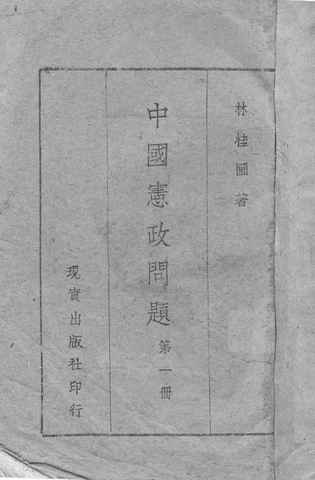 林桂圃著
中國憲政問題 第一冊
現實出版社印行